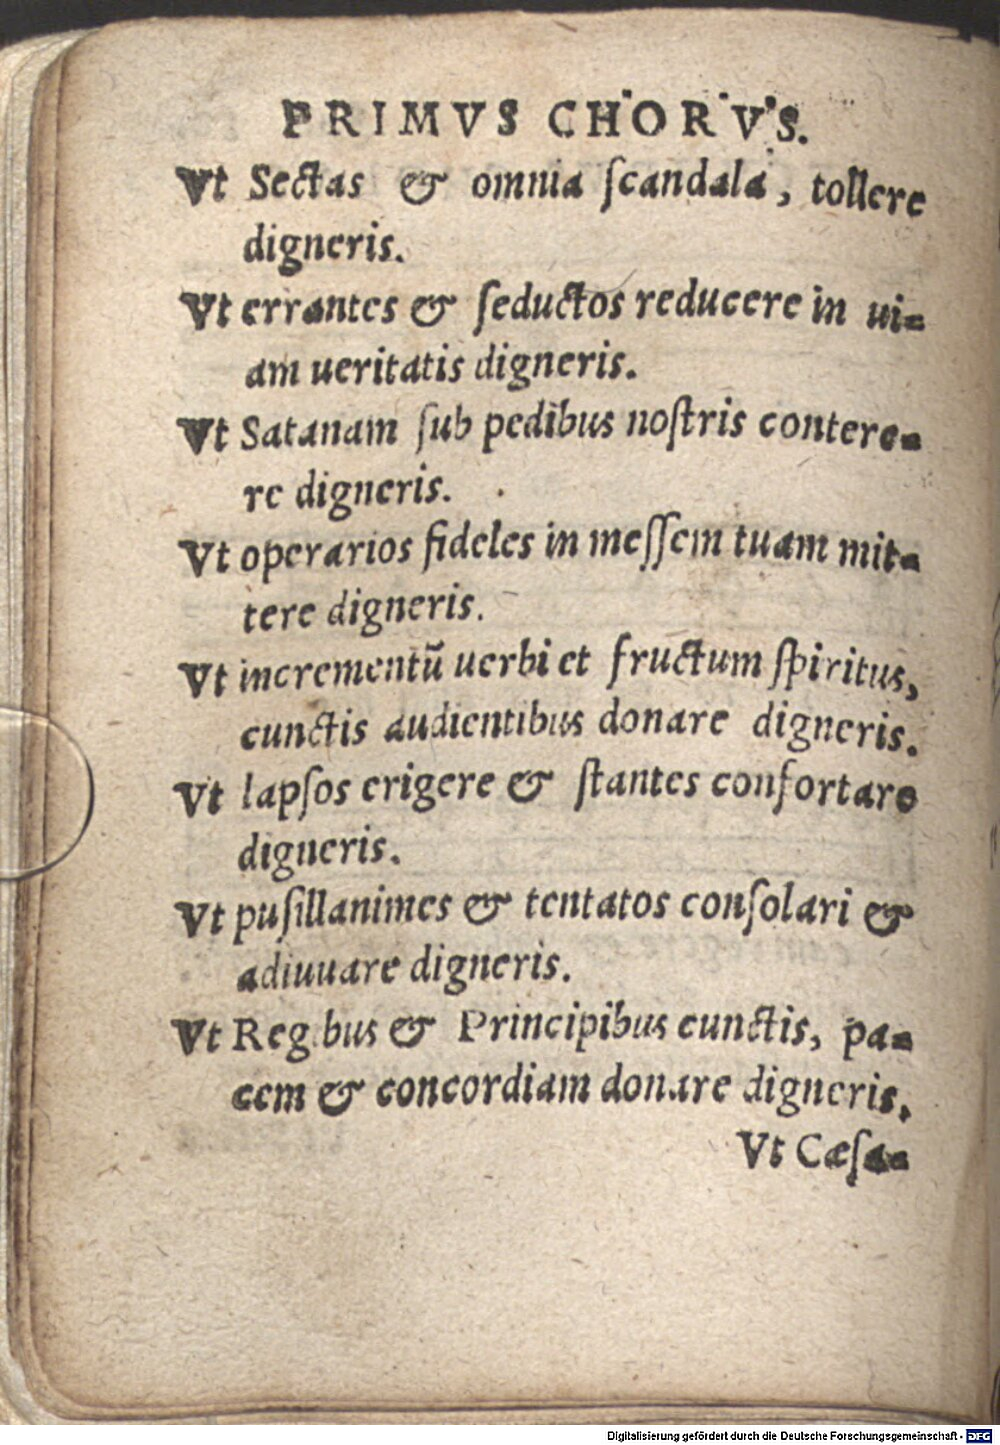 PRIMVS CHORVS.
Vt Sectas & omnia ſcandala, tollere
digneris.
Vt errantes & ſeductos reducere in ui-
am ueritatis digneris.
Vt Satanam ſub pedibus noſtris contere-
re digneris.
Vt operarios fideles in meſſem tuam mit-
tere digneris.
Vt incrementū uerbi et fructum ſpiritus,
cunctis audientibus donare digneris.
Vt lapſos erigere & ſtantes confortare
digneris.
Vt puſillanimes & tentatos conſolari &
adiuuare digneris.
Vt Reg bus & Principibus cunctis, pa-
cem & concordiam donare digneris.
Vt Cæſa-
Digitalisierung gefördert durch die Deutsche Forschungsgemeinschaft - DFG